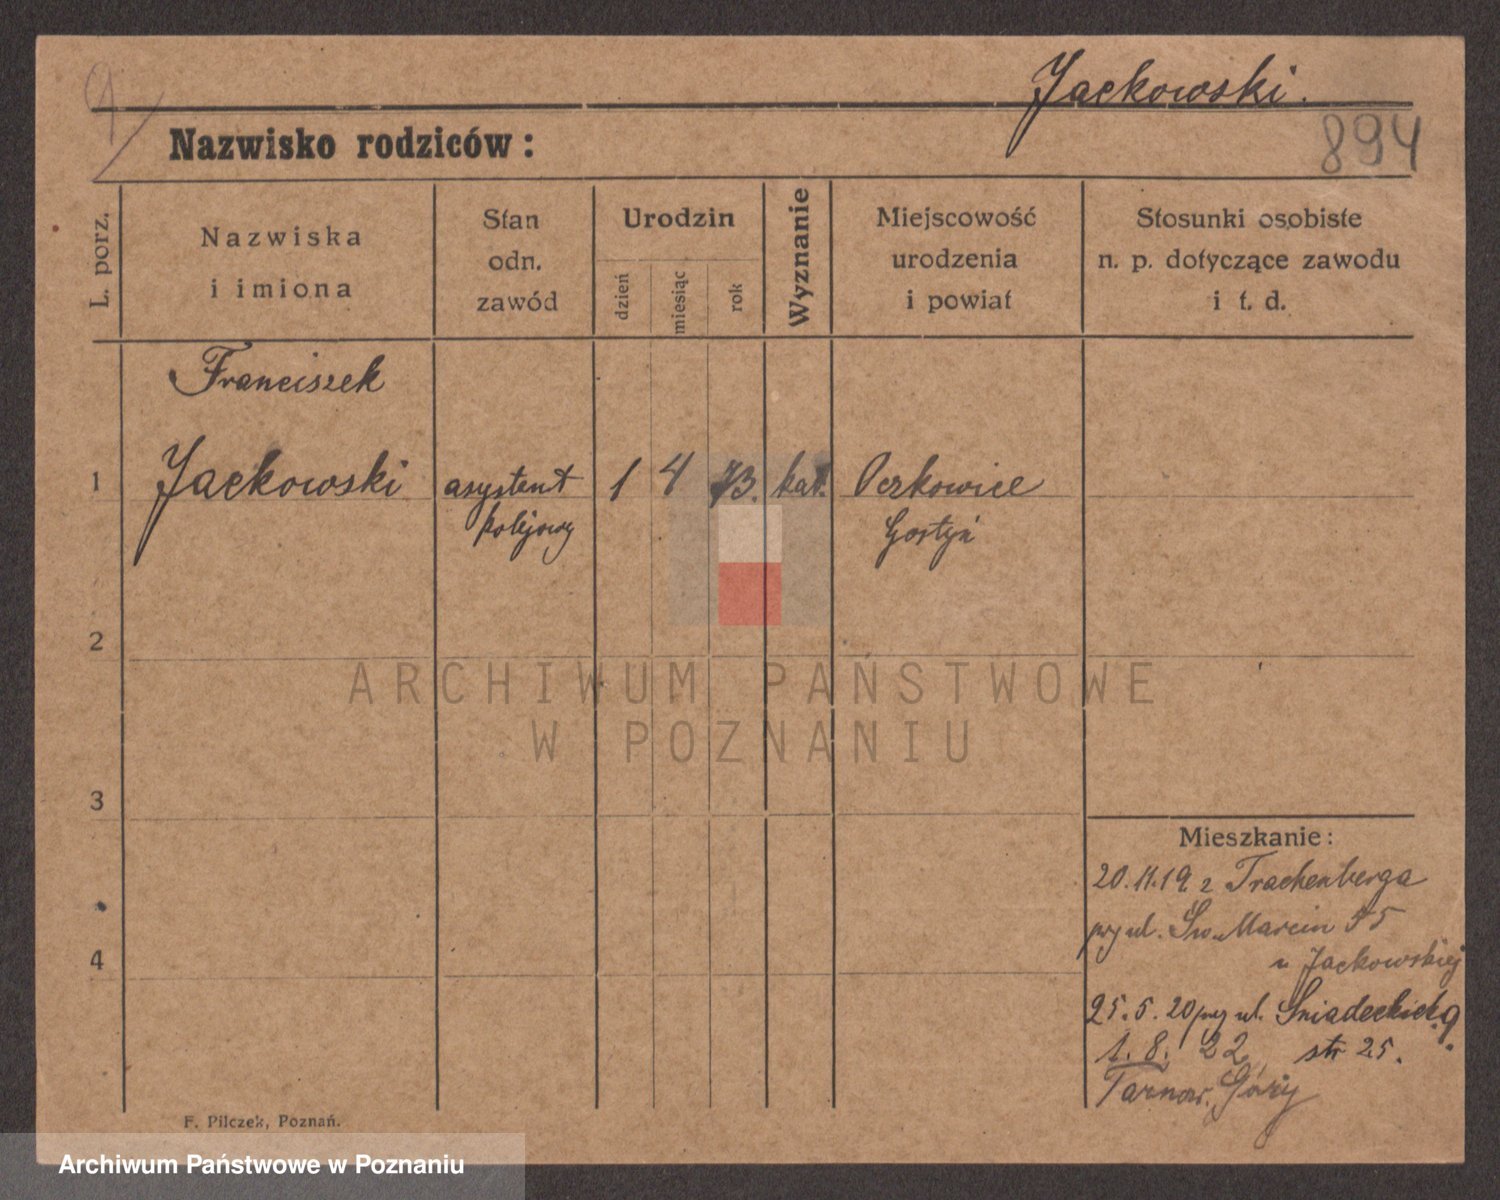 Jackowski.
894
Nazwisko rodziców:
L. porz.
Nazwiska
i imiona
Stan
odn.
zawód
Urodzin
dzień
miesiąc
rok
Wyznanie
Miejscowość
urodzenia
i powiat
Stosunki osobiste
n. p. dotyczące zawodu
i t. d.
Franciszek
1 Jackowski asystent 1 4 73. kat. Oczkowice
kolejowy Gostyń
2
ARCHIWUM PAŃSTWOWE
W POZNANIU
3
Mieszkanie:
20.11.19 z Trachenberga
przy ul. Św. Marcin 55
u Jackowskiej
4
25.5.20 przy ul. Śniadeckich 9.
1.8. 22 str 25.
Tarnow. Góry
F. Pilczek, Poznań.
Archiwum Państwowe w Poznaniu